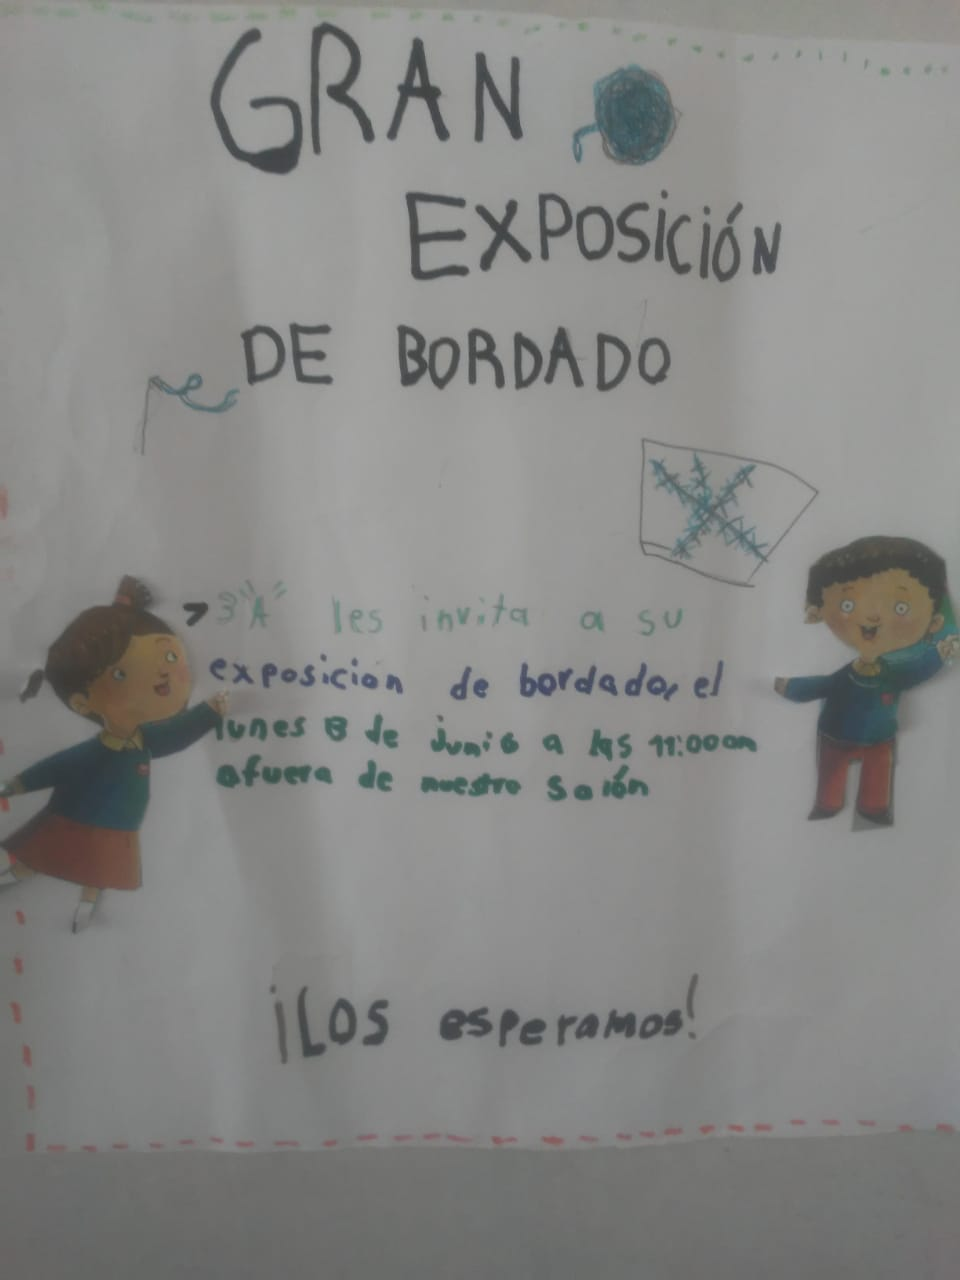 GRAN
EXPOSICIÓN
DE BORDADO
3"A" les invita a su
exposicion de bordado, el
lunes 8 de junio a las 11:00am
afuera de nuestro salón
¡Los esperamos!